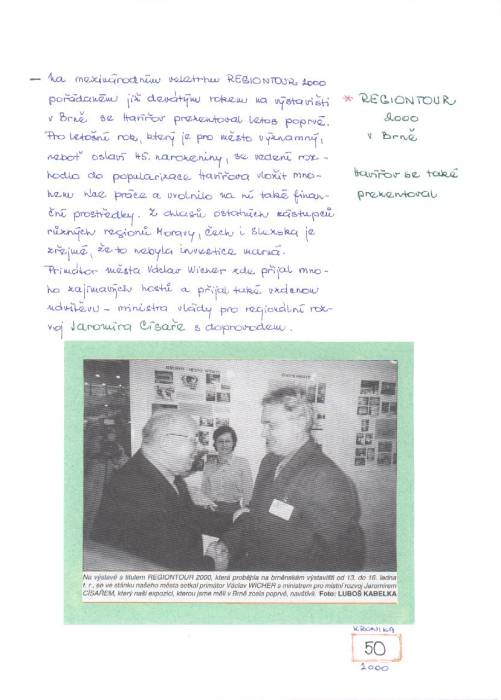 — Na mezinárodním veletrhu REGIONTOUR 2000
pořádaném již devátým rokem na výstavišti
v Brně se Havířov prezentoval letos poprvé.
Pro letošní rok, který je pro město významný,
neboť oslaví 45. narozeniny, se vedení roz-
hodlo do popularizace Havířova vložit mno-
hem více práce a uvolnilo na ni také finan-
ční prostředky. Z ohlasů ostatních zástupců
různých regionů Moravy, Čech i Slezska je
zřejmé, že to nebyla investice marná.
Primátor města Václav Wicher zde přijal mno-
ho zajímavých hostů a přijal také vzácnou
návštěvu – ministra vlády pro regionální roz-
voj Jaromíra Císaře s doprovodem.
* REGIONTOUR
2000
v Brně
Havířov se také
prezentoval
Na výstavě s titulem REGIONTOUR 2000, která probíhla na brněnském výstavišti od 13. do 16. ledna
t. r., se ve stánku našeho města setkal primátor Václav WICHER s ministrem pro místní rozvoj Jaromírem
CÍSAŘEM, který naši expozici, kterou jsme měli v Brně zcela poprvé, navštívil. Foto: LUBOŠ KABELKA
KRONIKA
50
2000